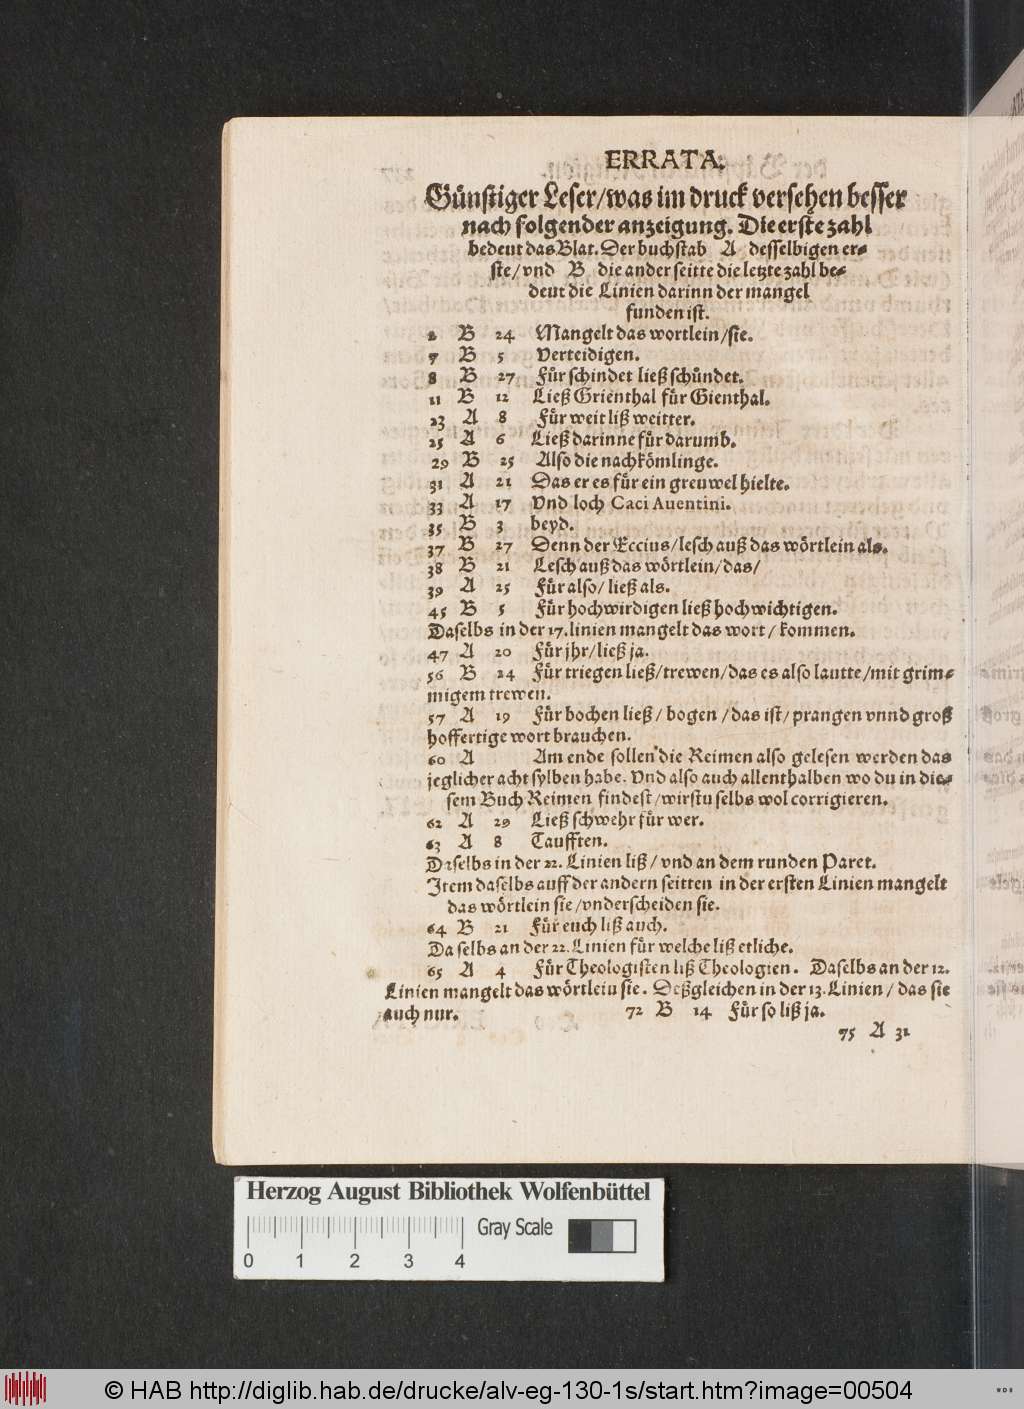 ERRATA.
Günstiger Leser/was im druck versehen besser
nach folgender anzeigung. Die erste zahl
bedeut das Blat. Der buchstab A desselbigen er-
ste/vnd B die ander seitte die letzte zahl be-
deut die Linien darinn der mangel
funden ist.
2 B 24 Mangelt das wortlein/sie.
7 B 5 Verteidigen.
8 B 27 Für schindet ließ schündet.
11 B 12 Ließ Grienthal für Gienthal.
23 A 8 Für weit liß weitter.
25 A 6 Ließ darinne für darumb.
29 B 25 Also die nachkömlinge.
31 A 21 Das er es für ein greuwel hielte.
33 A 17 Vnd loch Caci Auentini.
35 B 3 beyd.
37 B 27 Denn der Eccius/lesch auß das wörtlein als.
38 B 21 Lesch auß das wörtlein/das/
39 A 25 Für also/ ließ als.
45 B 5 Für hochwirdigen ließ hochwichtigen.
Daselbs in der 17. linien mangelt das wort/ kommen.
47 A 20 Für jhr/ließ ja.
56 B 24 Für triegen ließ/trewen/das es also lautte/mit grim-
migem trewen.
57 A 19 Für bochen ließ/ bogen/das ist/ prangen vnnd groß
hoffertige wort brauchen.
60 A Am ende sollen die Reimen also gelesen werden das
jeglicher acht sylben habe. Vnd also auch allenthalben wo du in die-
sem Buch Reimen findest/wirstu selbs wol corrigieren.
62 A 29 Ließ schwehr für wer.
63 A 8 Taufften.
Daselbs in der 22. Linien liß/ vnd an dem runden Paret.
Item daselbs auff der andern seitten in der ersten Linien mangelt
das wörtlein sie/vnderscheiden sie.
64 B 21 Für euch liß auch.
Daselbs an der 22. Linien für welche liß etliche.
65 A 4 Für Theologisten liß Theologien. Daselbs an der 12.
Linien mangelt das wörtlein sie. Deßgleichen in der 13. Linien/ das sie
auch nur. 72 B 14 Für so liß ja.
75 A 31
Herzog August Bibliothek Wolfenbüttel
Gray Scale
0 1 2 3 4
© HAB http://diglib.hab.de/drucke/alv-eg-130-1s/start.htm?image=00504